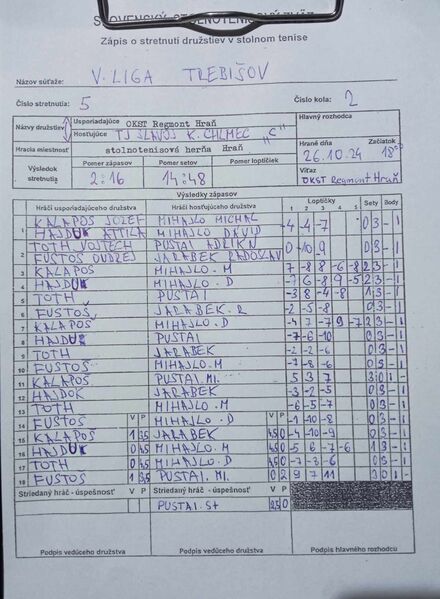 SLOVENSKÝ STOLNOTENISOVÝ ZVÄZ
Zápis o stretnutí družstiev v stolnom tenise
Názov súťaže: V. LIGA TREBIŠOV
Číslo stretnutia: 5 Číslo kola: 2
Názvy družstiev Usporiadajúce OKST Regmont Hraň Hlavný rozhodca
Hosťujúce TJ SLAVOJ K. CHLMEC "C"
Hracia miestnosť stolnotenisová herňa Hraň Hrané dňa 26.10.24 Začiatok 18
Výsledok stretnutia Pomer zápasov 2:16 Pomer setov 14:48 Pomer loptičiek Víťaz OKST Regmont Hraň
Výsledky zápasov
Hráči usporiadajúceho družstva Hráči hosťujúceho družstva Loptičky 1 2 3 4 5 Sety Body
1 KALAPOŠ JOZEF MIHAJLO MICHAL -4 -4 -7 0 3 - 1
HAJDUK ATTILA MIHAJLO DAVID
2 TOTH VOJTECH PUSTAI ADRIKN 0 -10 -9 0 3 - 1
FUSTOŠ ONDREJ JARABEK RADOSLAV
3 KALAPOŠ MIHAJLO. M 7 -8 8 -6 -8 2 3 - 1
4 HAJDUK MIHAJLO. D
5 TOTH PUSTAI -3 8 -4 -8 1 3 - 1
6 FUSTOŠ JARABEK. R -2 -5 -8 0 3 - 1
7 KALAPOŠ MIHAJLO. D 2 3 - 1
8 HAJDUK PUSTAI -7 -6 -10 0 3 - 1
9 TOTH JARABEK -2 -2 -6 0 3 - 1
10 FUSTOŠ MIHAJLO. M -7 -8 -6 0 3 - 1
11 KALAPOŠ PUSTAI. MI. 5 3 7 3 0 1 -
12 HAJDOK JARABEK 0 3 - 1
13 TOTH MIHAJLO. M -6 -5 -7 0 3 - 1
14 FUSTOŠ V P MIHAJLO. D V P -1 -10 -8 0 3 - 1
15 KALAPOŠ 1 3,5 JARABEK 4,5 0 -4 -10 -9 0 3 - 1
16 HAJDUK 0 4,5 MIHAJLO. M 4,5 0 1 3 - 1
17 TOTH 0 4,5 MIHAJLO. D 4,5 0 -7 -3 -6 0 3 - 1
18 FUSTOŠ 1 3,5 PUSTAI. MI. 0 2 9 7 11 3 0 1 -
Striedaný hráč - úspešnosť V P Striedaný hráč - úspešnosť V P
PUSTAI. St 2,5 0
Podpis vedúceho družstva Podpis vedúceho družstva Podpis hlavného rozhodcu